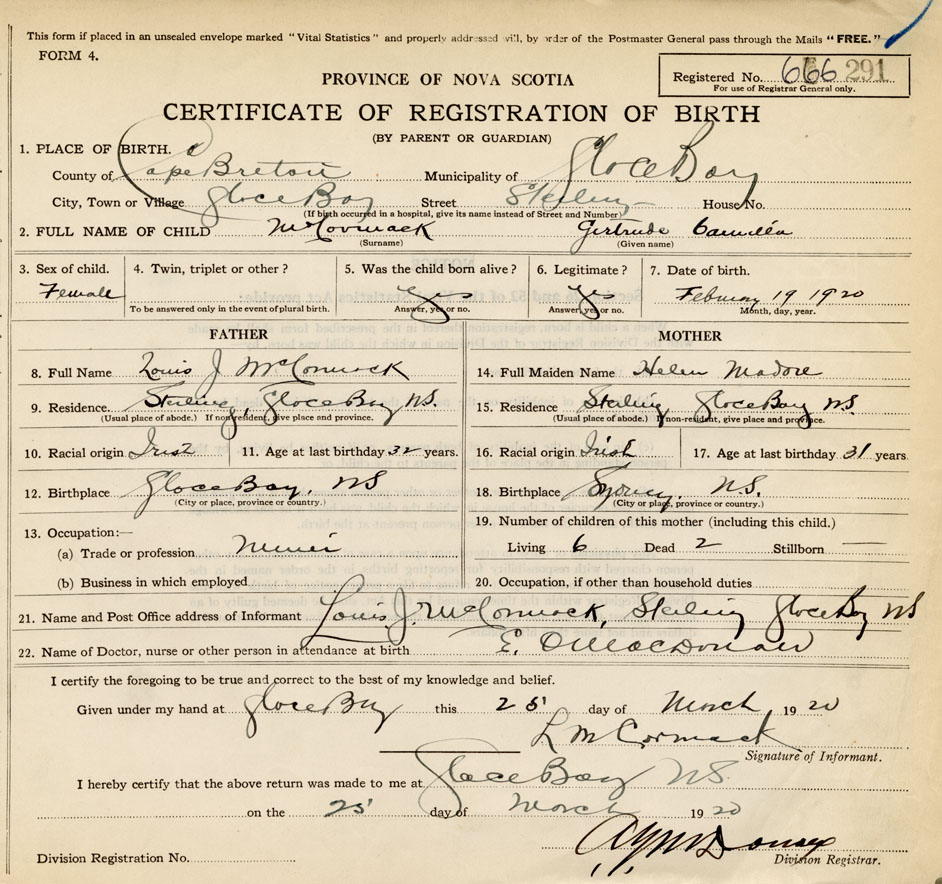 This form if placed in an unsealed envelope marked "Vital Statistics" and properly addressed will, by order of the Postmaster General pass through the Mails "FREE."
FORM 4.
PROVINCE OF NOVA SCOTIA
Registered No. 666 291
For use of Registrar General only.
CERTIFICATE OF REGISTRATION OF BIRTH
(BY PARENT OR GUARDIAN)
1. PLACE OF BIRTH.
County of Cape Breton Municipality of Glace Bay
City, Town or Village Glace Bay Street Sterling House No.
(If birth occurred in a hospital, give its name instead of Street and Number)
2. FULL NAME OF CHILD McCormack Gertrude Camilla
(Surname) (Given name)
3. Sex of child. 4. Twin, triplet or other? 5. Was the child born alive? 6. Legitimate? 7. Date of birth.
Female Yes Yes February 19 1920
To be answered only in the event of plural birth. Answer, yes or no. Answer, yes or no. Month, day, year.
FATHER MOTHER
8. Full Name Louis J McCormack 14. Full Maiden Name Helen Madore
9. Residence. Sterling, Glace Bay N.S. 15. Residence Sterling Glace Bay N.S.
(Usual place of abode.) If non-resident, give place and province. (Usual place of abode.) If non-resident, give place and province.
10. Racial origin Irish 11. Age at last birthday 32 years. 16. Racial origin Irish 17. Age at last birthday 31 years.
12. Birthplace Glace Bay, NS 18. Birthplace Sydney, N.S.
(City or place, province or country.) (City or place, province or country.)
13. Occupation:— 19. Number of children of this mother (including this child.)
(a) Trade or profession Miner Living 6 Dead 2 Stillborn —
(b) Business in which employed 20. Occupation, if other than household duties
21. Name and Post Office address of Informant Louis J. McCormack, Sterling Glace Bay NS
22. Name of Doctor, nurse or other person in attendance at birth E. O. MacDonald
I certify the foregoing to be true and correct to the best of my knowledge and belief.
Given under my hand at Glace Bay this 25' day of March, 1920
L McCormack
Signature of Informant.
I hereby certify that the above return was made to me at Glace Bay NS.
on the 25' day of March 1920
Division Registration No. Division Registrar.